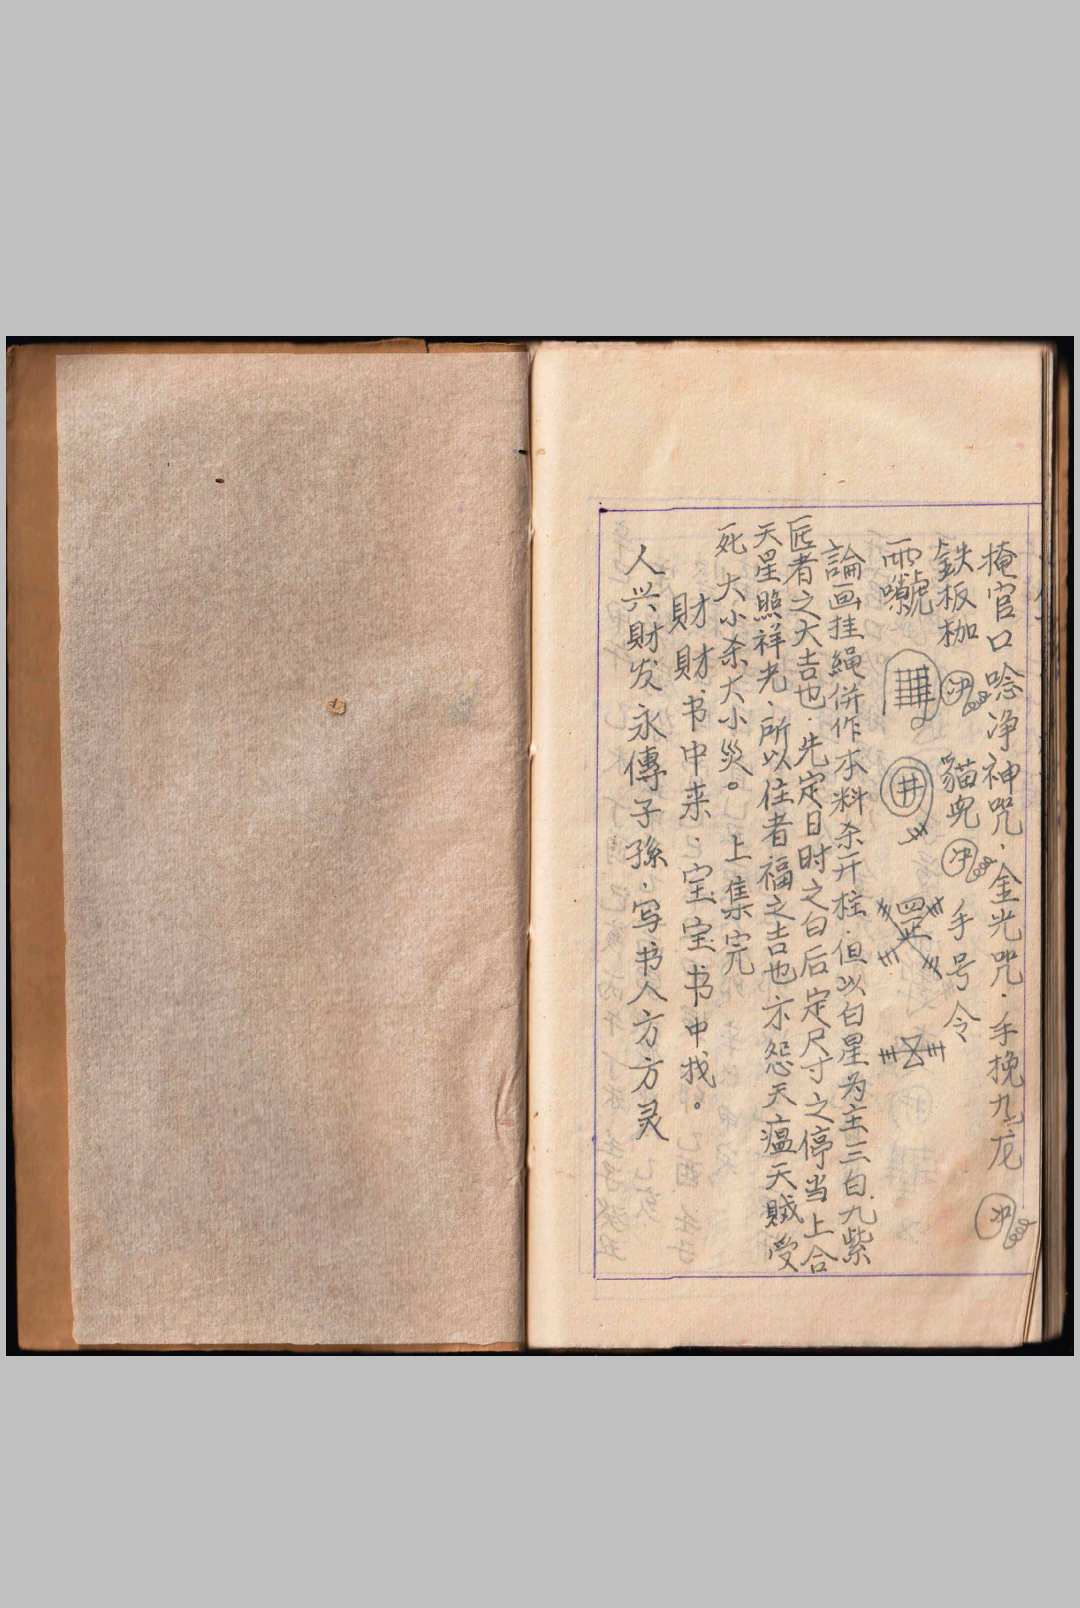 掩官口唸净神咒．金光咒．手挽九龙
鉄板枷 貓皃 手号令
論画挂繩併作本料杀开柱．但以白星为主三白九紫
匠者之大吉也．先定日时之白后定尺寸之停当上合
天星照祥光．所以住者福之吉也亦怨天瘟天賊受
死 大小杀大小災。 上集完
財財书中来．宝宝书中找。
人兴財发永傳子孫．写书人方方灵